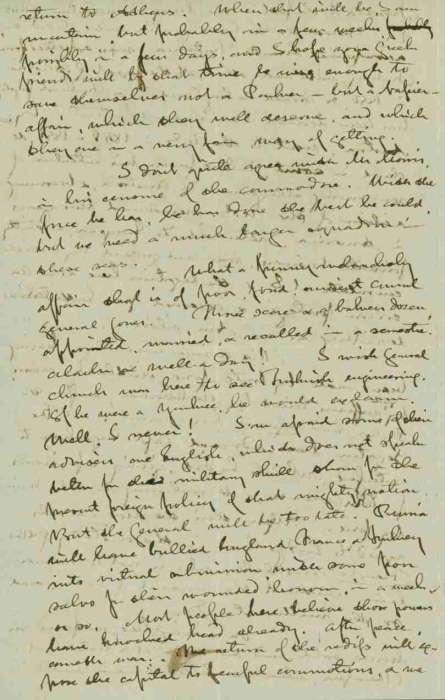 return to Athens. When that will be I am
uncertain, but probably in a few weeks,
possibly in a few days, and I hope your Greek
friends will by that time be wise enough to
save themselves not a Parker – but a Napier –
affair, which they well deserve, and which
they are in a very fair way of getting.
I don't quite agree with Mr. Morris,
in his censure of the commodore. With the
force he has, he has done the best he could,
but we need a much larger squadron in
these seas. What a funny melancholy
affair that is of poor, fond, ancient
general Jones. Nine score & balance dozen,
appointed, married, & recalled in a semestre.
alack & well a day! I wish General
Church was here to see Turkish engineering.
If he were a Yankee, he would exclaim,
Well, I never! I'm afraid some of their
advisers are English, which does not speak
better for their military skill than for the
present foreign policy of that mighty nation.
But the General will be too late. Russia
will have bullied England, France &
into virtual submission under some poor
salvo for their wounded honour, in a week
or so. Most people here believe those powers
have knocked head already. After peace,
cometh war. The return of the redifs will ex-
pose the capital to fearful commotions, & we